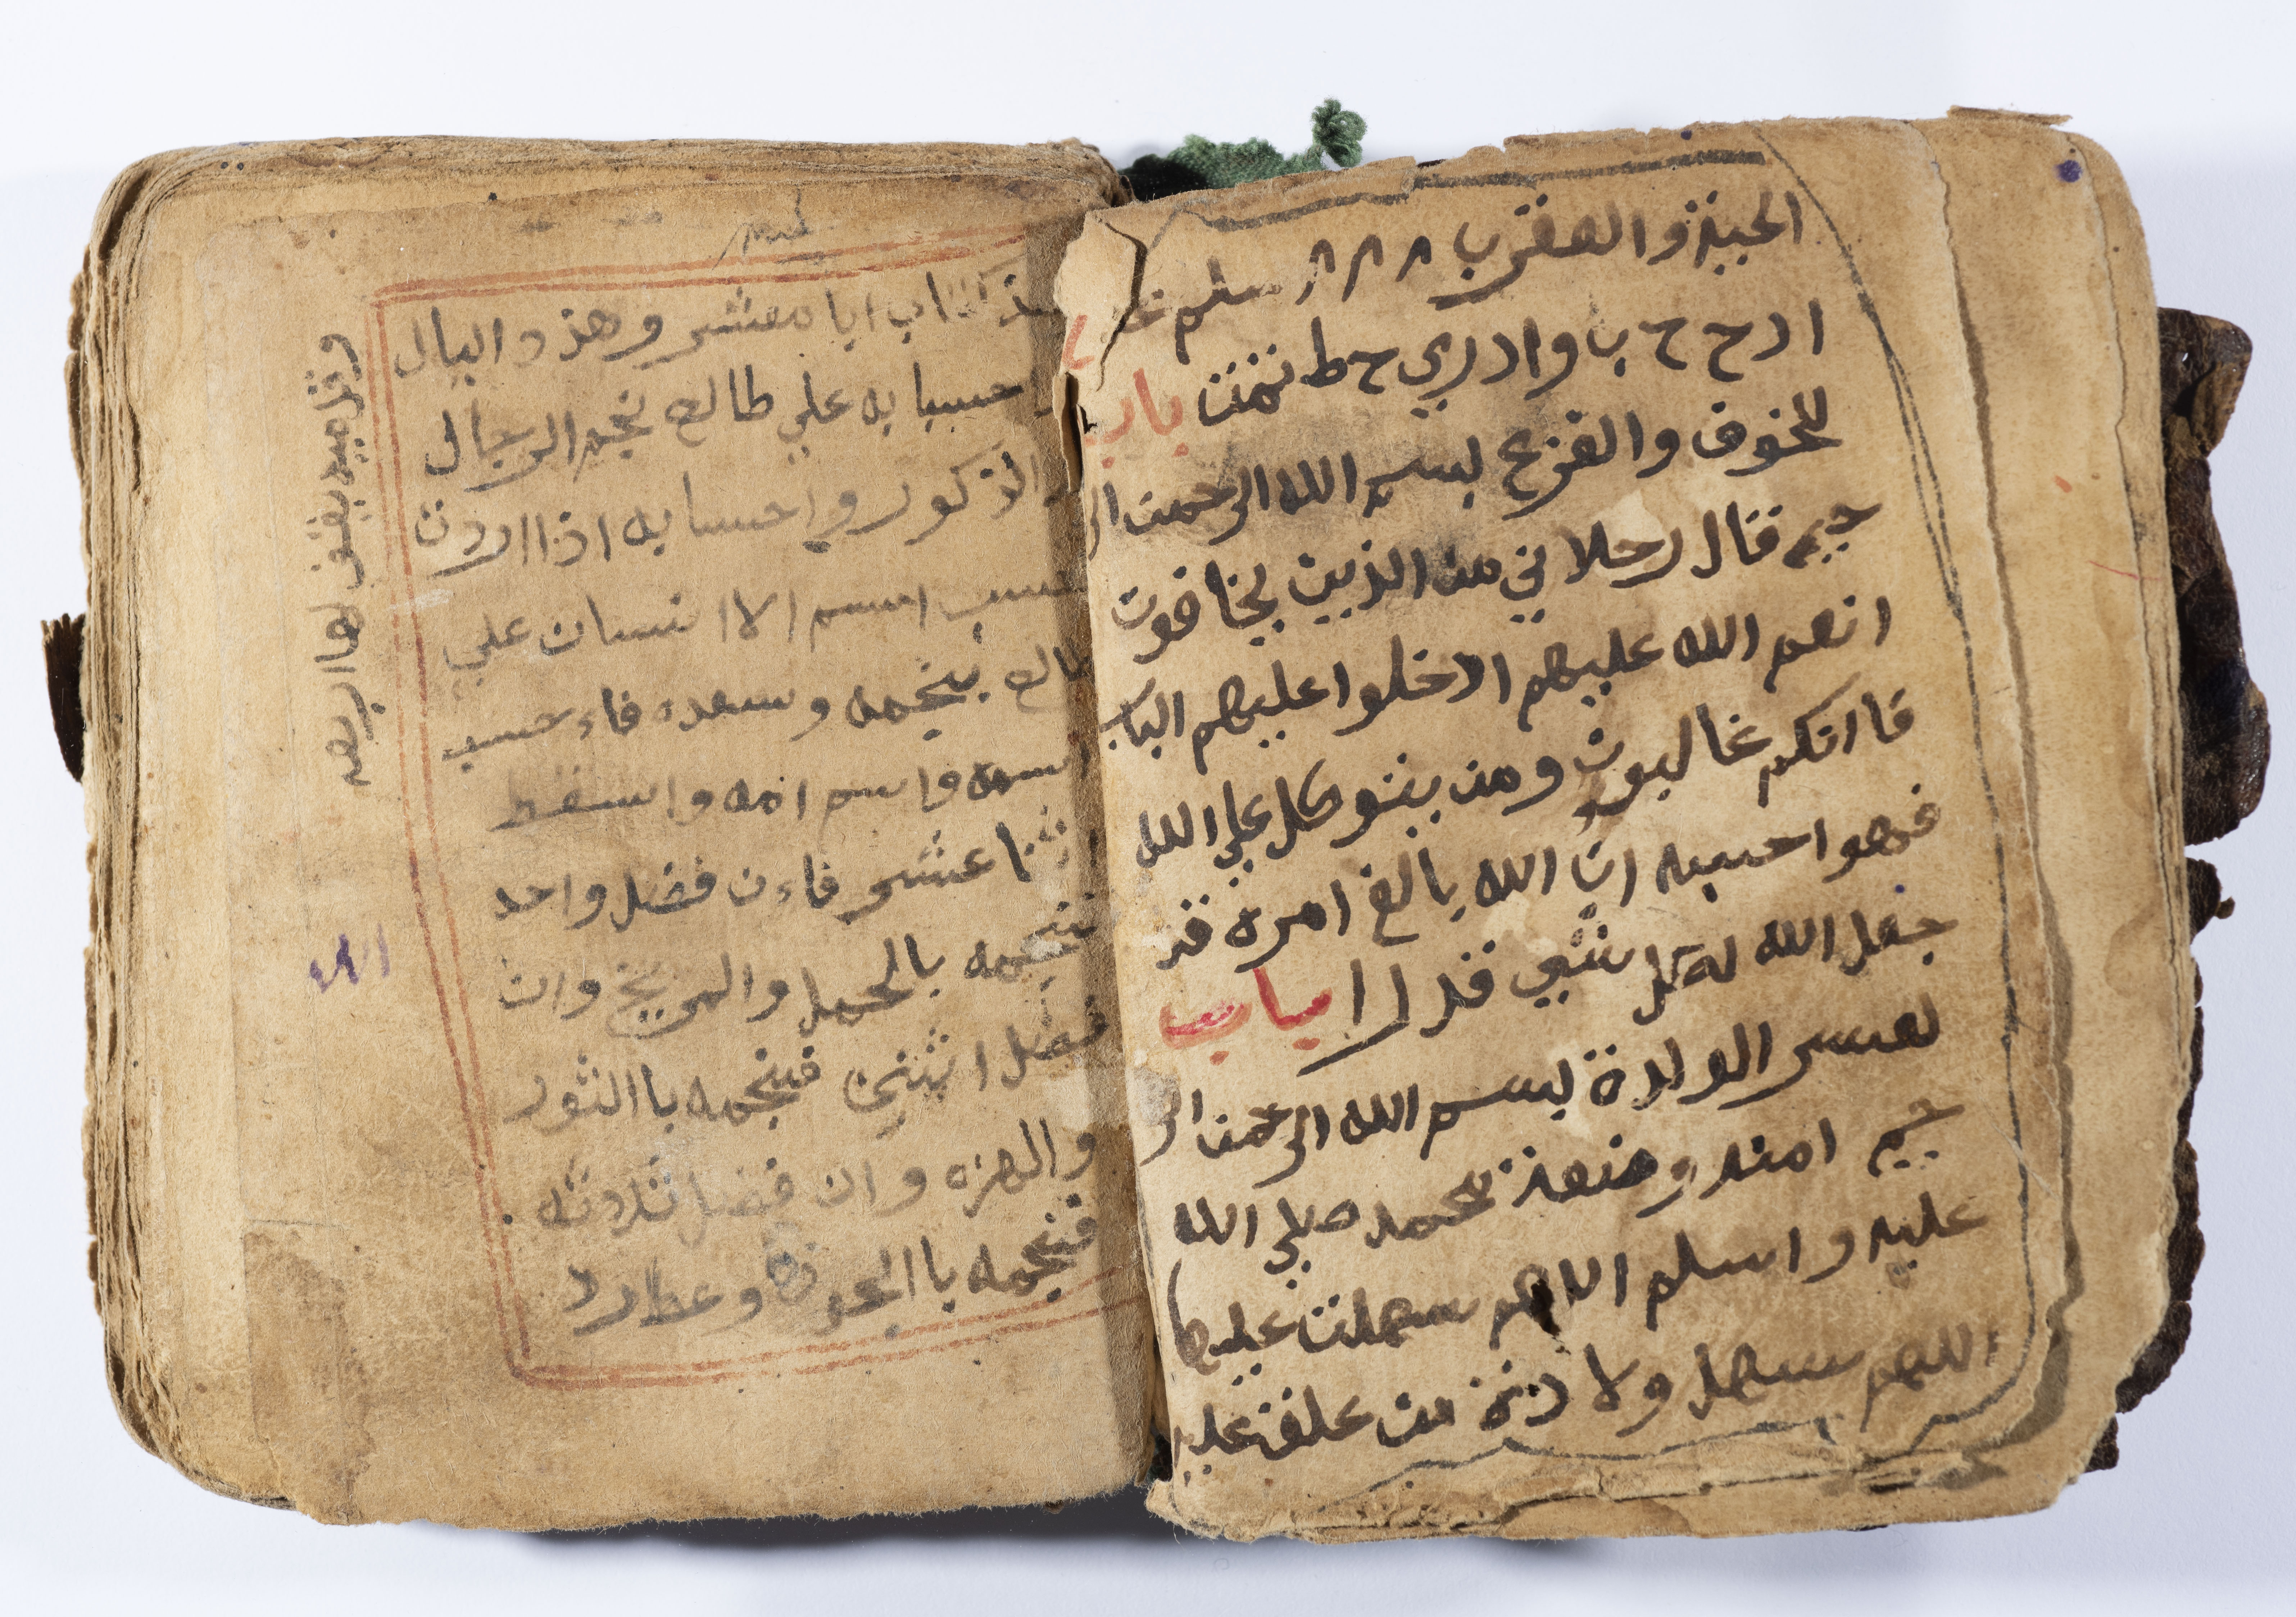 الحية والعقرب ٨ ٨ ٨ سلم
ا د ح ح ب وا د ري ح ط تمت باب
للخوف والفزع بسم الله الرحمن الر
حيم قال رجلا ني من الذين يخافون
انعم الله عليهم ادخلوا عليهم الباب
فا انكم غالبون ومن يتوكل علي الله
فهوا حسبه ان الله بالغ امره قد
جعل الله لكل شي قدرا باب
لعسر الولادة بسم الله الرحمن الر
حيم امنه وضعة محمد صلي الله
عليه واسلم اللهم سهلت عليها
اللهم سهل ولا دة من علقة عليه
كتاب ابا معشر وهذه البال
حسبا به علي طالع نجم الرجال
الذكور واحسابه اذا اردت
تحسب اسم الا انسان علي
طالع بنجمه وسعده فاء حسب
اسمه واسم امه واسقط
اثنا عشر فاءن فضل واحد
فنجمه بالحمل والمريخ وان
فضل اثنين فنجمه با الثور
والزهره وان فضل ثلاثه
فنجمه با الجوزه وعطارد
الله